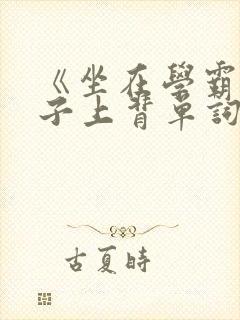 《坐在學霸
子上背單詞
古夏時